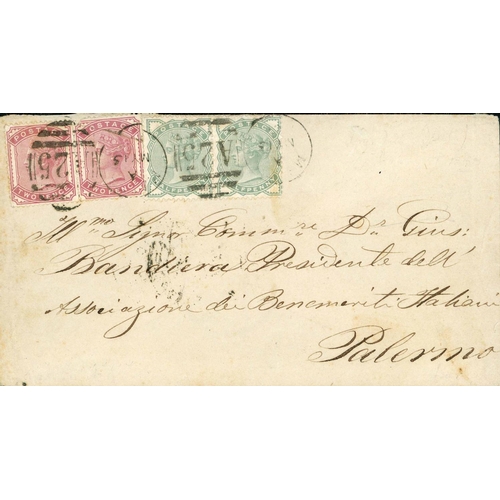 POSTAGE POSTAGE POSTAGE POSTAGE
A25 A25
TWO PENCE TWO PENCE HALFPENNY HALFPENNY
Ill.mo Sinor Comm.re Dr Gius:
Bandiera Presidente dell'
Associazione dei Benemeriti Italiani
Palermo